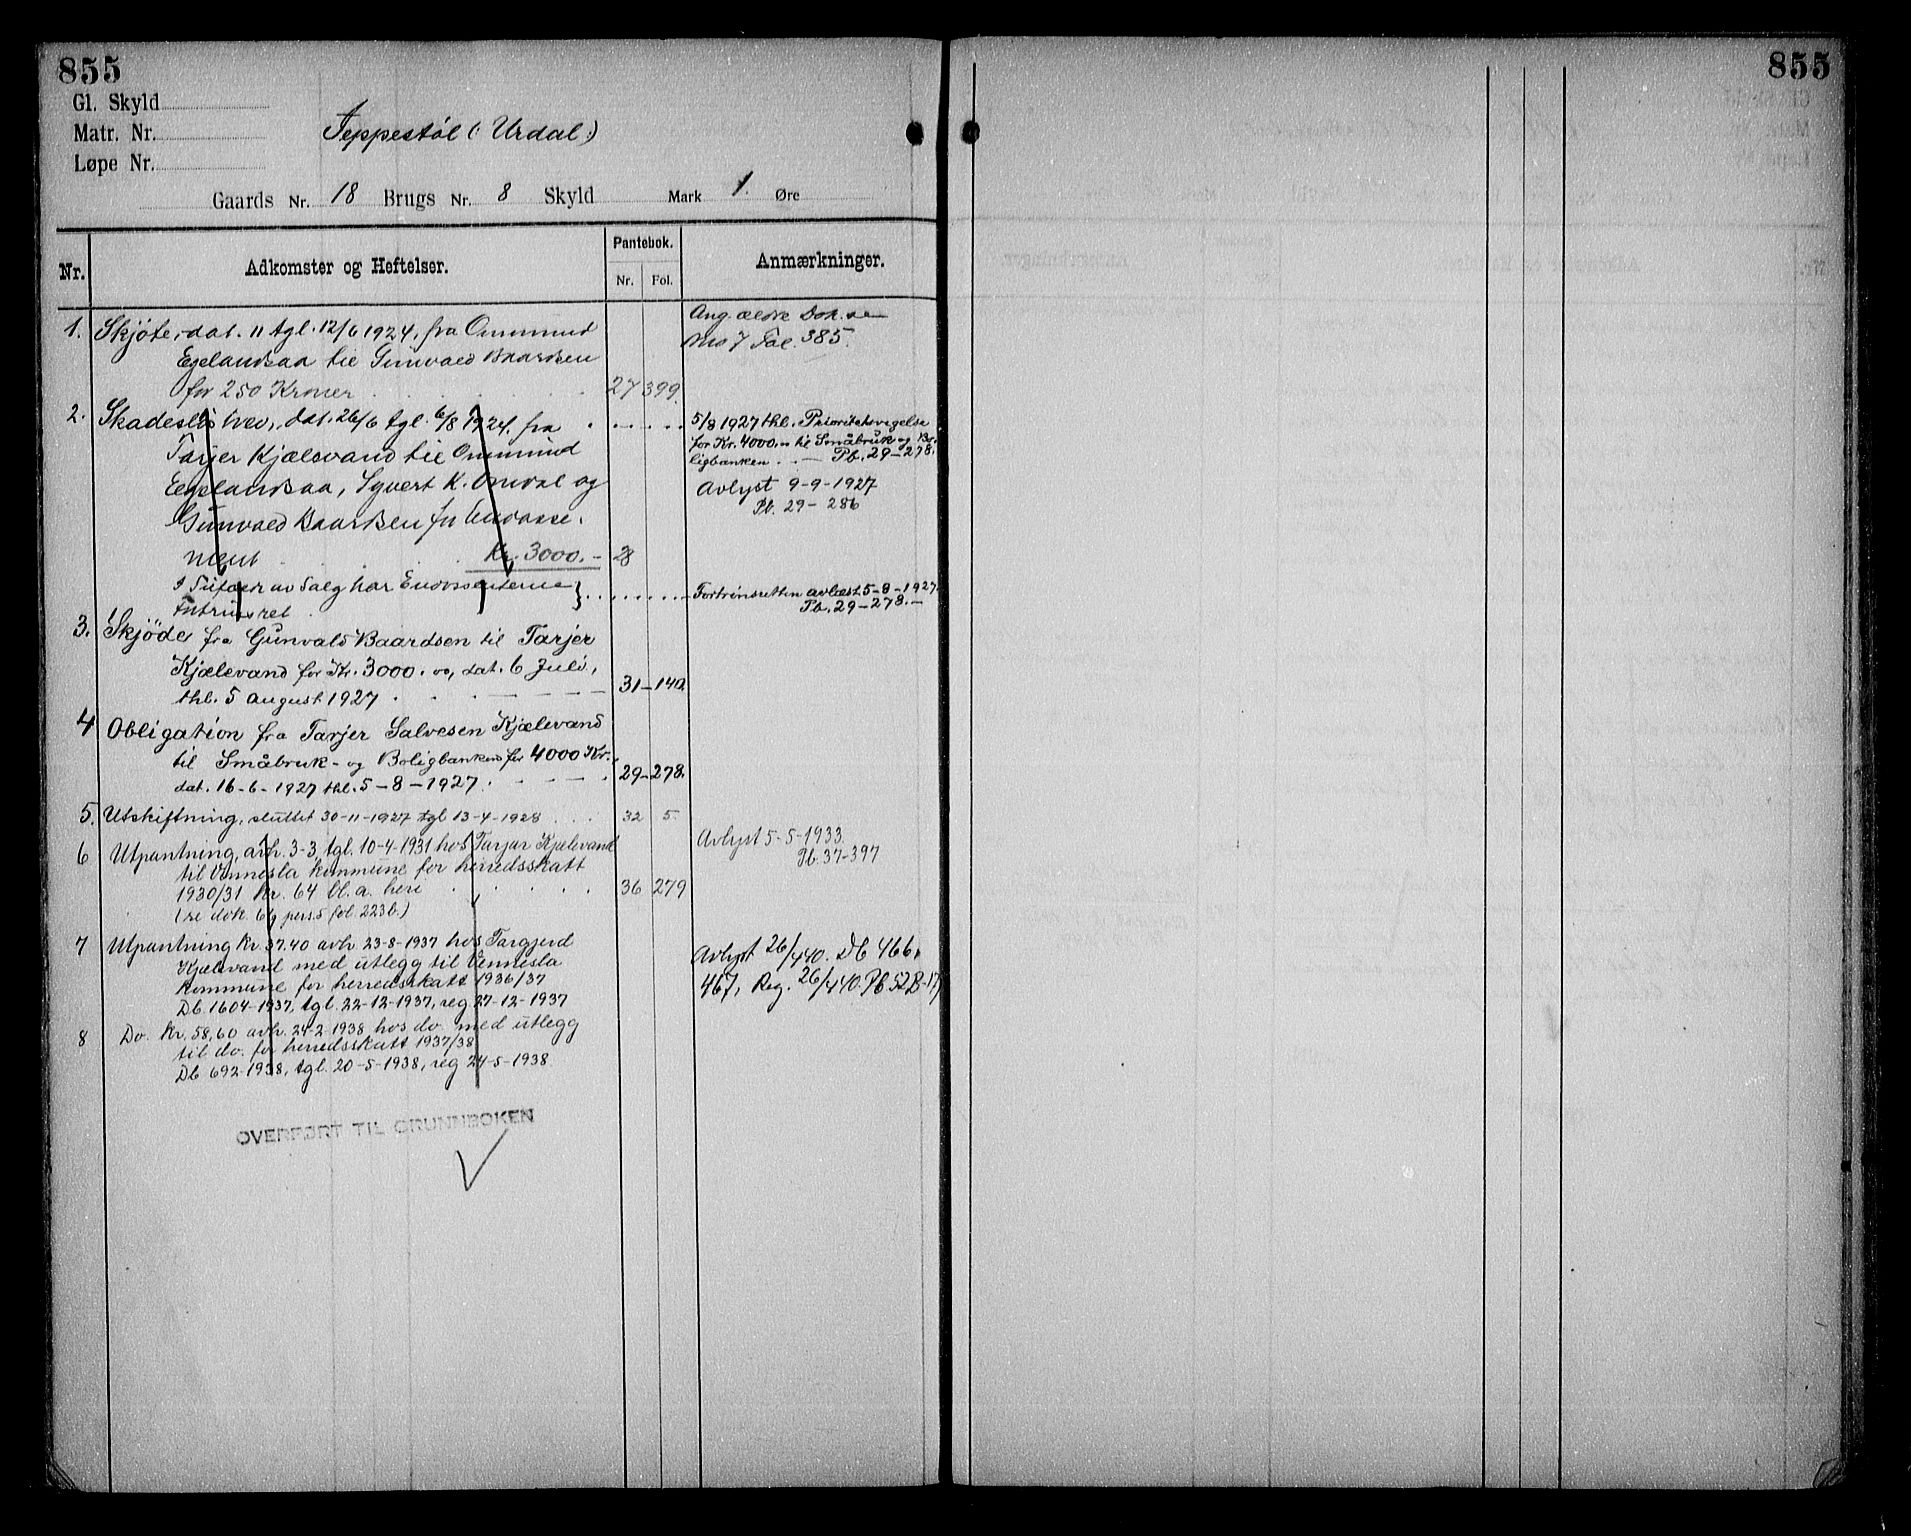 855
855
Gl. Skyld
Matr. Nr.
Løpe Nr.
Teppestøl (: Urdal :)
Gaards Nr. 18 Brugs Nr. 8 Skyld Mark 1 Øre
Nr. Adkomster og Heftelser. Pantebok. Anmærkninger.
Nr. Fol.
1. Skjøte, dat. 11 tgl. 12/6 1924, fra Ommund
Egelandsaa til Gunvald Baardsen
for 250 Kroner 27 399.
Ang. ældre Dok. se
No 7 Fol. 385.
2. Skadesløsbrev, dat. 26/6 tgl. 6/8 1924. fra
Tarjer Kjælevand til Ommund
Egelandsaa, Syvert K. Omdal og
Gunvald Baardsen for Endosse.
ment Kr. 3000.- 28
5/8 1927 thl. Prioritetsvigelse
for Kr. 4000.- til Småbruk og Bo-
ligbanken . . — Pb. 29-278.
Avlyst 9-9-1927
Pb. 29-286
I Tilfælde av Salg har Endossenterne }
Fortrinsret.
Fortrinsretten avlæst 5-8-1927.
Pb. 29-278.-
3. Skjøde fra Gunvald Baardsen til Tarjer
Kjælevand for Kr. 3000.00, dat. 6 Juli,
thl. 5 august 1927 31-140.
4 Obligation fra Tarjer Salvesen Kjælevand
til Småbruk- og Boligbanken for 4000 Kr.
dat. 16-6-1927 thl. 5-8-1927. 29-278.
5. Utskiftning, sluttet 30-11-1927 tgl 13-4-1928 32 5.
6 Utpantning, avh. 3-3, tgl. 10-4-1931 hos Tarjer Kjælevand
til Vennesla kommune for herredsskatt
1930/31 kr. 64 bl. a. heri 36 279
(se dok. 6 pers. 5 fol. 223b.)
Avlyst 5-5-1933.
Pb. 37-397
7 Utpantning kr. 37.40 avh 23-8-1937 hos Targjerd
Kjælevand med utlegg til Vennesla
kommune for herredsskatt 1936/37
Db. 1604-1937, tgl. 22-12-1937, reg 27-12-1937
Avlyst 26/4 40. Db 466
467, Reg. 26/4 40. Pb 52B-17
8 Do. kr. 58,60 avh. 24-2-1938 hos do. med utlegg
til do. for herredsskatt 1937/38
Db 692-1938, tgl. 20-5-1938, reg 24-5-1938
OVERFØRT TIL GRUNNBOKEN